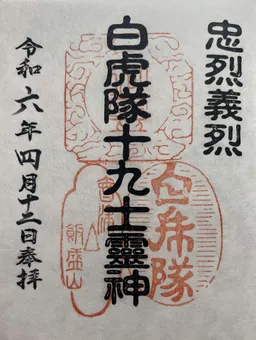 忠烈義烈
白虎隊十九士靈神
令和六年四月十二日奉拝
白虎隊
飯盛山